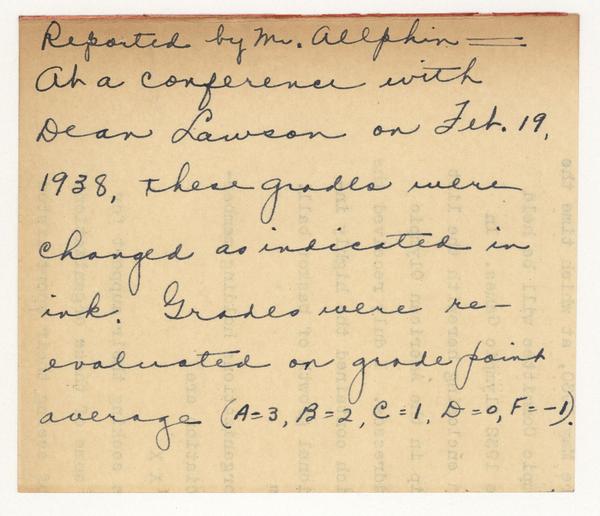 Reported by Mr. Allphin —
At a conference with
Dean Lawson on Feb. 19,
1938, these grades were
changed as indicated in
ink. Grades were re-
evaluated on grade point
average (A=3, B=2, C=1, D=0, F=-1).